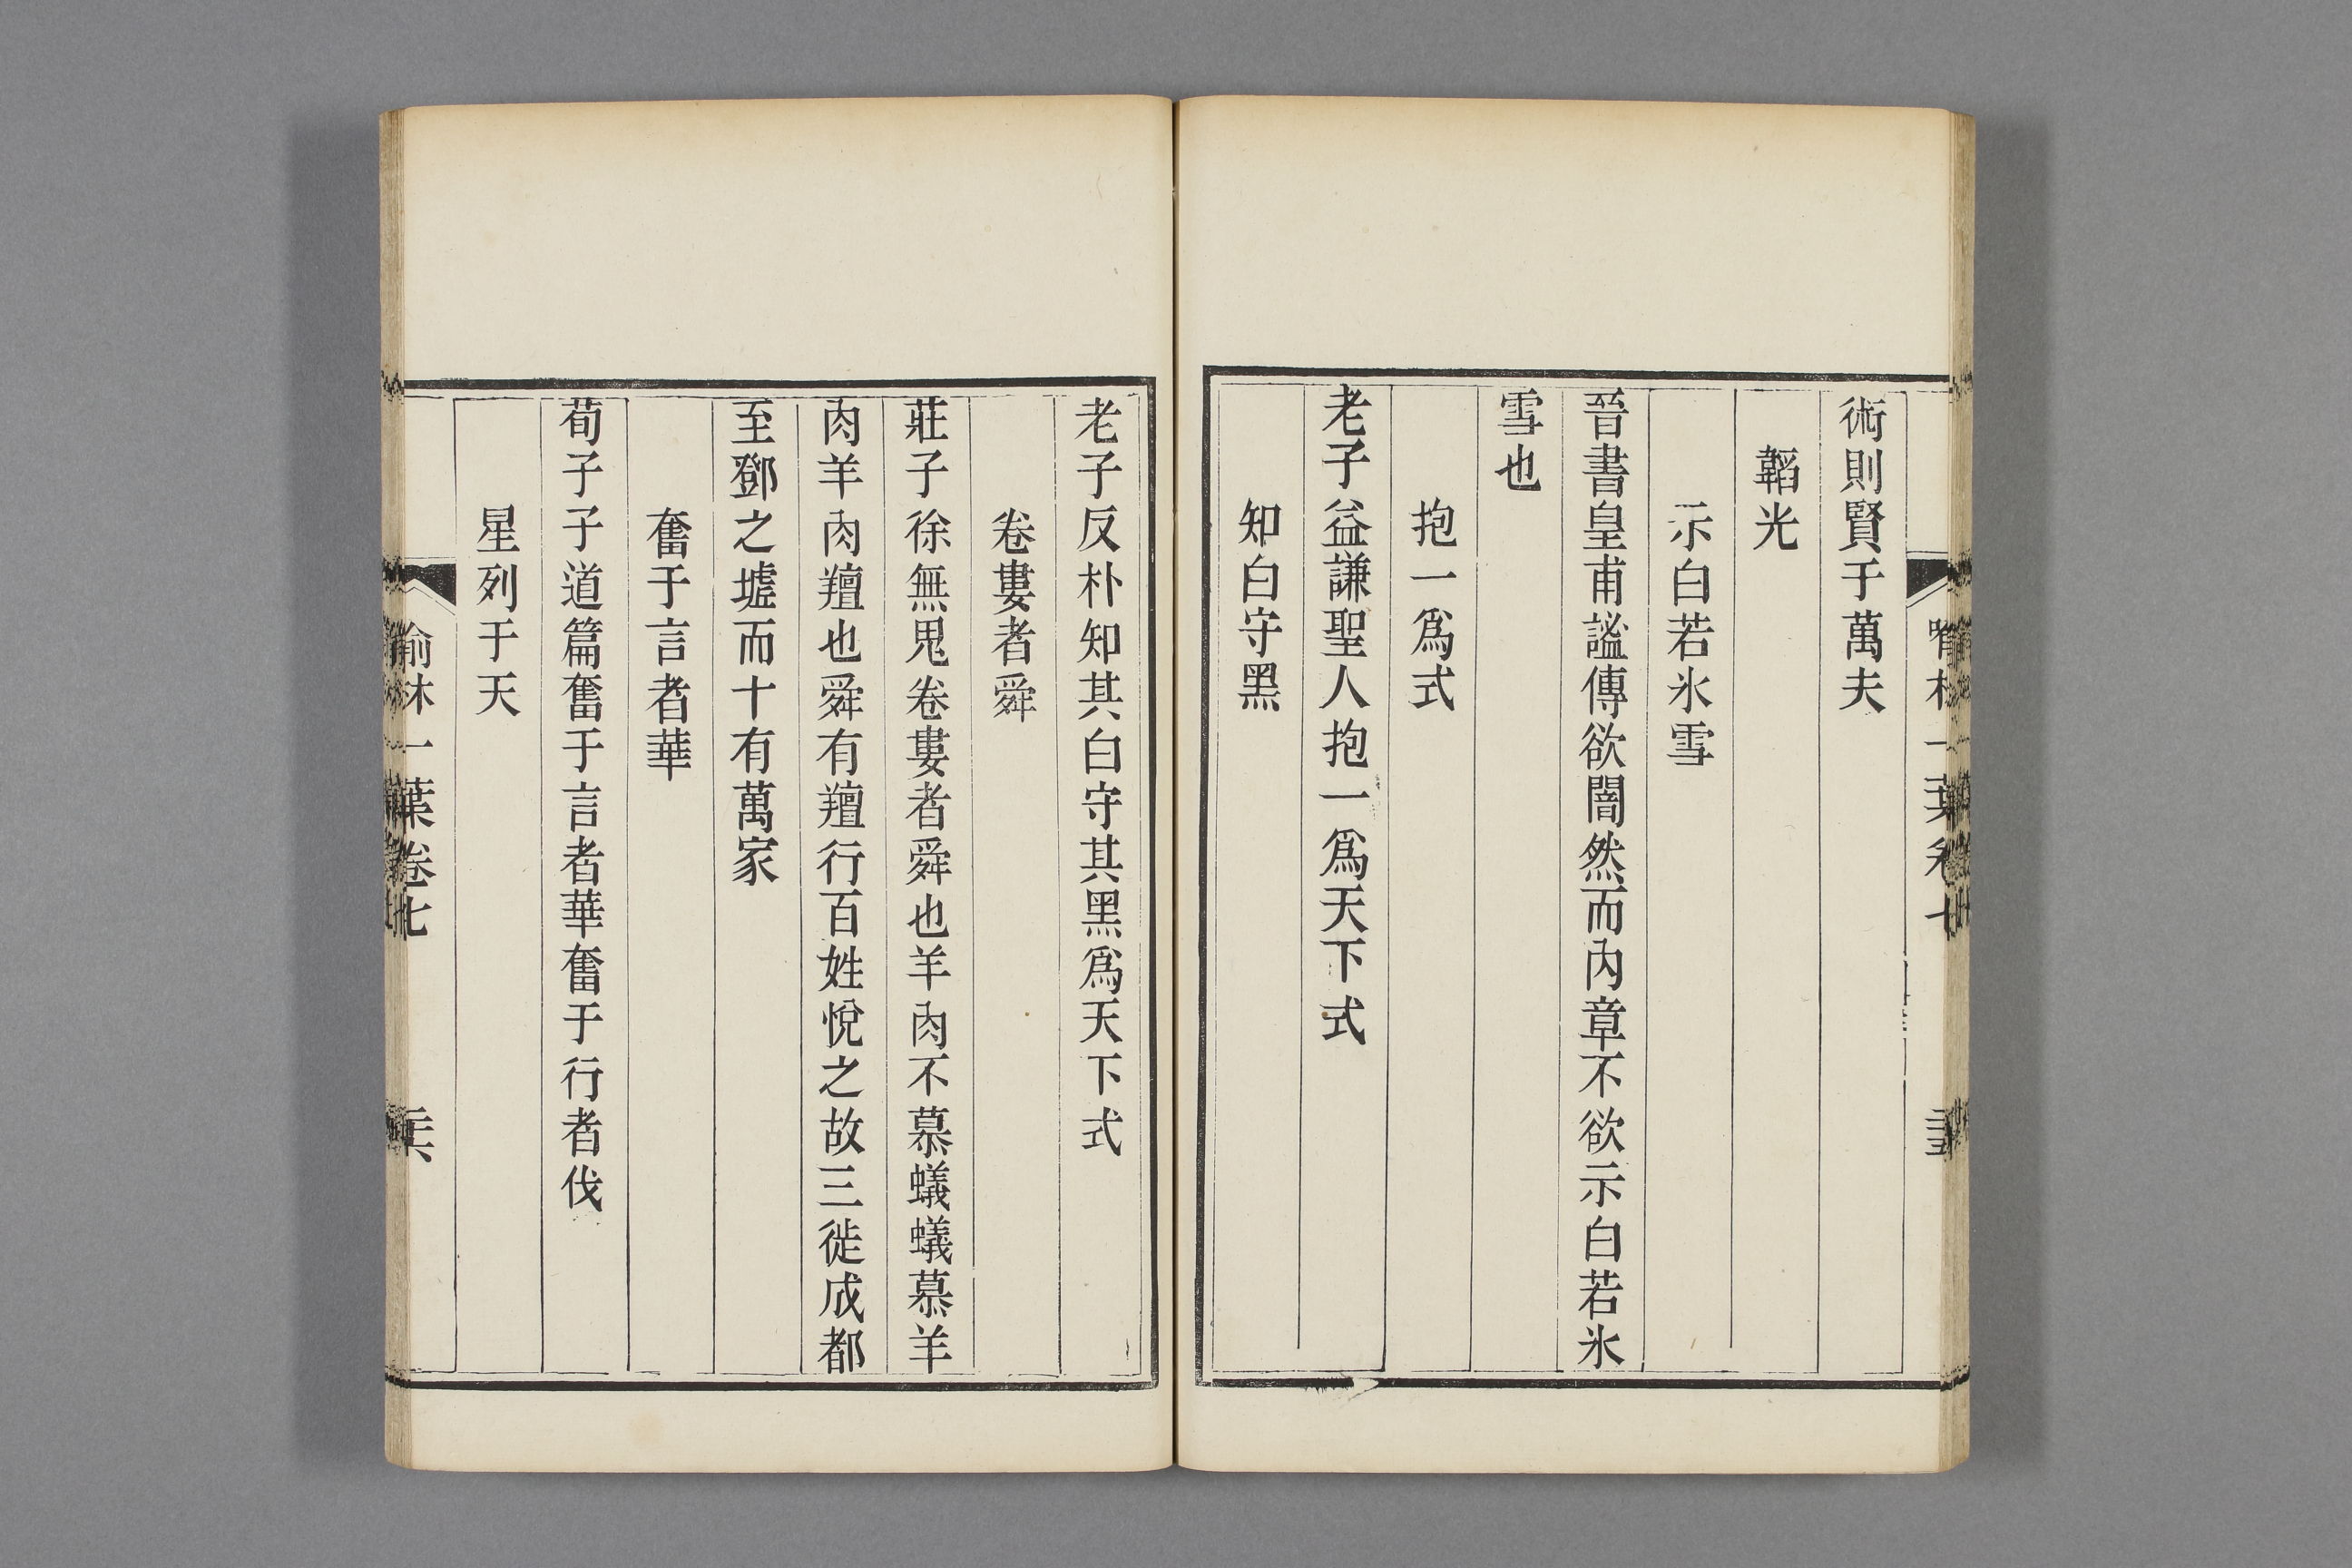 術則賢于萬夫
韜光
示白若氷雪
晉書皇甫謐傳欲闇然而內章不欲示白若氷
雪也
抱一爲式
老子益謙聖人抱一爲天下式
知白守黑
老子反朴知其白守其黑爲天下式
卷婁者舜
莊子徐無鬼卷婁者舜也羊肉不慕蟻蟻慕羊
肉羊肉羶也舜有羶行百姓悅之故三徙成都
至鄧之墟而十有萬家
奮于言者華
荀子子道篇奮于言者華奮于行者伐
星列于天
喻林一葉卷七